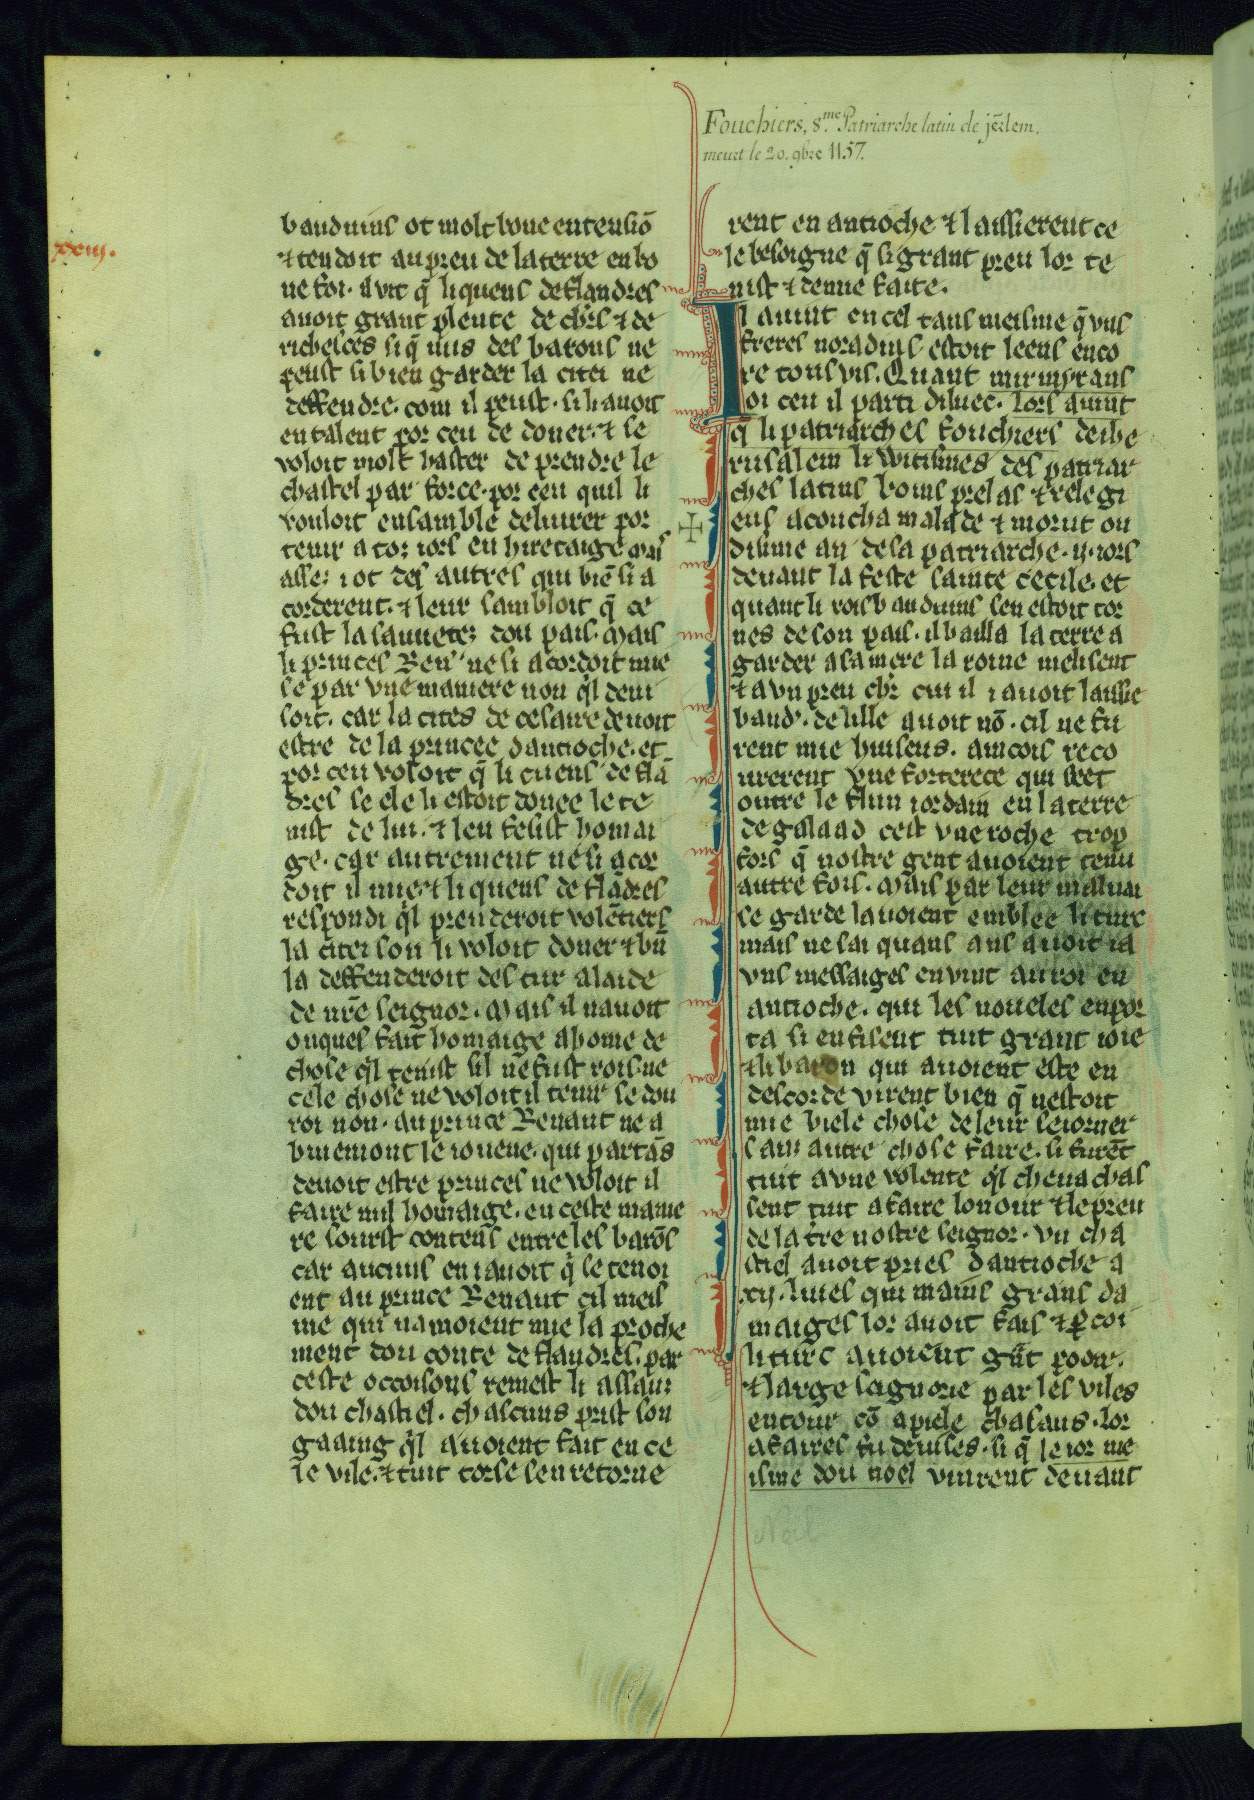 Fouchiers, 8.me Patriarche latin de jer̄lem.
meurt le 20. 9bre 1157.
xxiij.
bauduins ot molt bone entensiō
⁊ tendoit au preu de la terre en bo
ne foi. il vit q̄ li quens de flandres
auoit grant plente de chrs̄ ⁊ de
richesces si q̄ nus des barons ne
peust si bien garder la citei ne
deffendre. com il peust. si li auoit
en talent por ceu de doner. ⁊ se
voloit molt haster de prendre le
chastel par force. por ceu quil li
vouloit ensamble deliurer por
tenir a toz iors en hiretaige mais
assez i ot des autres qui biē si a
corderent. ⁊ leur sambloit q̄ ce
fust la sauuetez dou pais. Mais
li princes Ren' ne si acordoit mie
se par vne maniere non ql deui
soit. car la cites de cesaire deuoit
estre de la princee dantioche. et
por ceu voloit q̄ li cuens de flā
dres se ele li estoit donee le te
nist de lui. ⁊ len fesist homai
ge. car autrement ne si acor
doit il mie ⁊ li quens de flādres
respondi ql prenderoit volētiers
la citei son li voloit doner ⁊ bn̄
la deffenderoit des tur a laide
de nr̄e seignor. Mais il nauoit
onques fait homaige a home de
chose ql tenist sil ne fust rois. ne
cele chose ne voloit il tenir se dou
roi non. au prince Renaut ne a
buiemont le iouene. qui par tās
deuoit estre princes ne voloit il
faire nul homaige. en ceste manie
re sourst contens entre les barōs
car aucuns en i auoit q̄ se tenoi
ent au prince Renaut cil meis
me qui namoient mie la proche
ment dou conte de flandres. par
ceste occoisons remest li assauz
dou chastel. chascuns prist son
gaaing ql auoient fait en ce
le vile. ⁊ tuit torse sen retorne
rent en antioche ⁊ laissierent ce
le besoigne q̄ si grant preu lor te
nist ⁊ denne faite.
Il auint en cel tans meisme q̄ vns
freres noradins estoit leens enco
re tous vis. Quant mirmirans
oi ceu il parti diluec. Lors auint
q̄ li patriarches fouchiers de ihe
rusalem li witismes des patriar
ches latins boins prelas ⁊ relegi
eus acoucha malade ⁊ morut ou
disime an de sa patriarche. ij. iors
deuant la feste sainte cecile. et
quant li rois bauduins sen estoit tor
nes de son pais. il bailla la terre a
garder a sa mere la roine melisent
⁊ a vn preu chr̄ cui il i auoit laissie
baud'. de lille auoit nō. cil ne fu
rent mie huiseus. aincois reco
urerent vne forterece qui siet
outre le flun iordain en la terre
de galaad cest vne roche trop
fors q̄ nostre gent auoient tenu
autre fois. Mais par leur maluai
se garde lauoient emblee li turc
mais ne sai quans ans auoit ia
vns messaiges en vint au roi en
antioche. qui les noueles en por
ta si en fisent tuit grant ioie
⁊ li baron qui auoient este en
descorde virent bien q̄ nestoit
mie biele chose de leur seiorner
sain autre chose faire. si furēt
tuit a vne volente ql cheuachas
sent tuit a faire lonour ⁊ le preu
de la tr̄e nostre seignor. vn cha
stiel auoit pries dantioche a
xij. liues qui mains grans da
maiges lor auoit fais ⁊ p̄ coi
li turc auoient gn̄t pooir.
⁊ large seignorie par les viles
entour. cō apiele chasaus. lor
afaires fu deuises. si q̄ le ior me
isme dou noel vinrent deuant
Noel